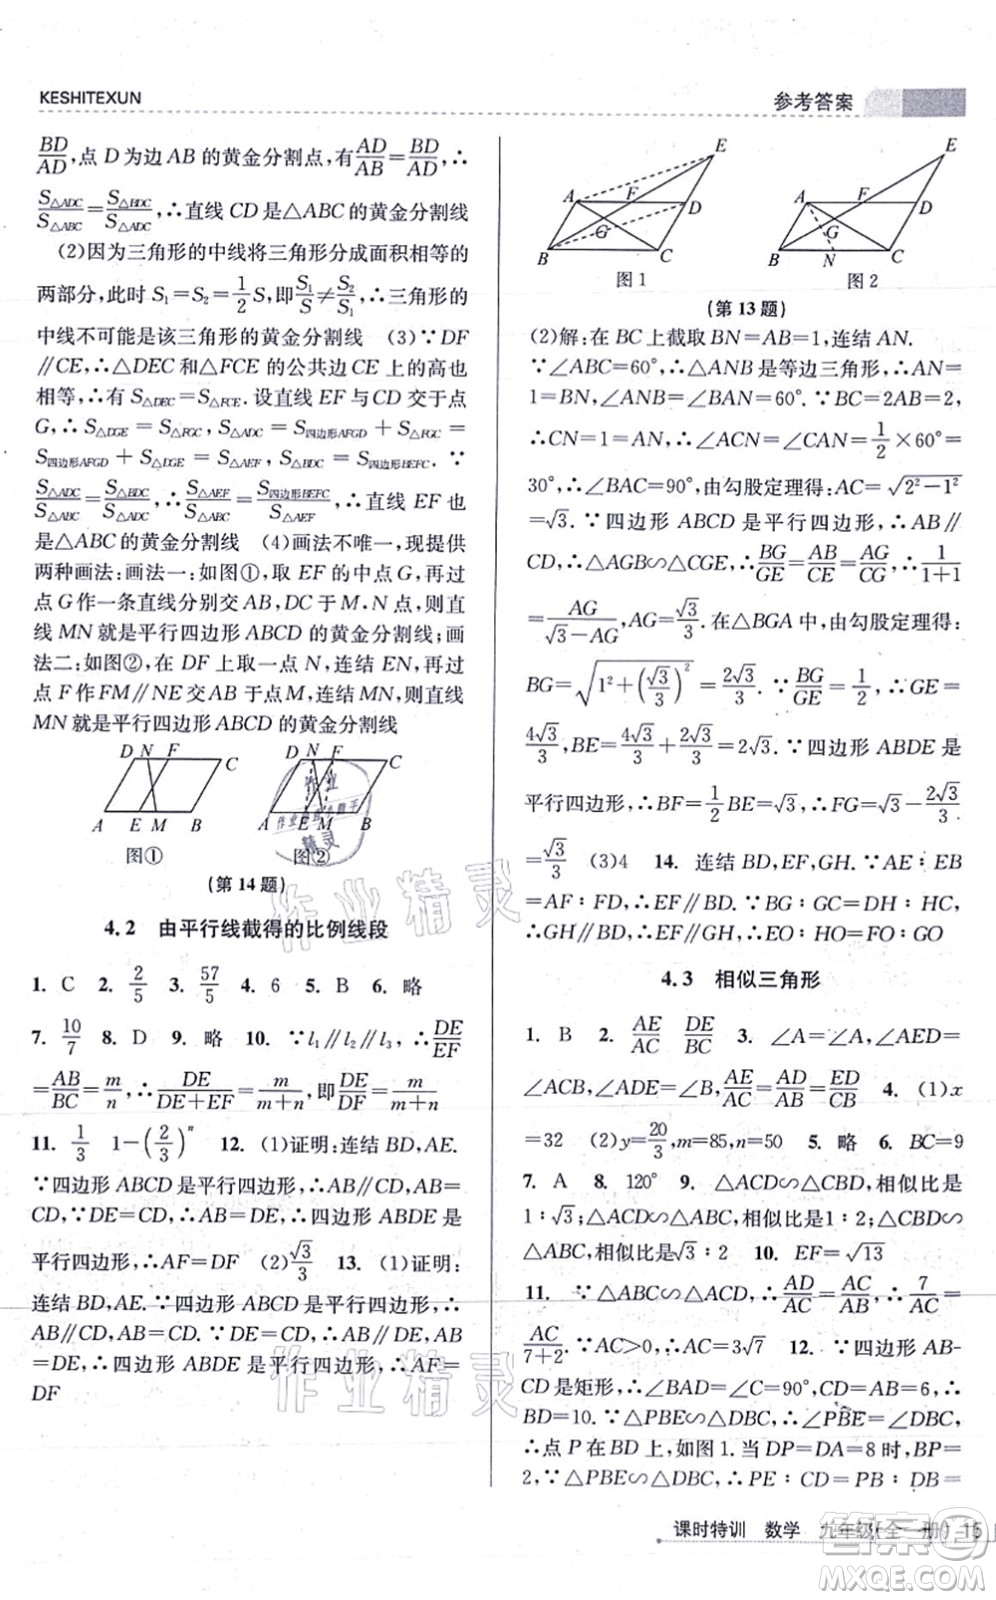 KESHITEXUN
参考答案
BD/AD,点 D 为边 AB 的黄金分割点,有AD/AB=BD/AD,∴
S△ADC/S△ABC=S△BDC/S△ADC,∴直线 CD 是△ABC 的黄金分割线
(2)因为三角形的中线将三角形分成面积相等的
两部分,此时 S₁=S₂=1/2 S,即S₁/S≠S₂/S₁,∴三角形的
中线不可能是该三角形的黄金分割线 (3)∵DF
∥CE,∴△DEC 和△FCE 的公共边 CE 上的高也
相等,∴有 S△DEC=S△FCE. 设直线 EF 与CD 交于点
G,∴S△DGE=S△FGC,∴S△ADC=S四边形AFGD+S△FGC=
S四边形AFGD+S△DGE=S△AEF,S△BDC=S四边形BEFC. ∵
S△ADC/S△ABC=S△BDC/S△ADC,∴S△AEF/S△ABC=S四边形BEFC/S△AEF,∴直线 EF 也
是△ABC 的黄金分割线 (4)画法不唯一,现提供
两种画法:画法一:如图①,取 EF 的中点 G,再过
点 G 作一条直线分别交 AB,DC 于 M、N 点,则直
线 MN 就是平行四边形 ABCD 的黄金分割线;画
法二:如图②,在 DF 上取一点 N,连结 EN,再过
点 F 作 FM∥NE 交 AB 于点M,连结 MN,则直线
MN 就是平行四边形 ABCD 的黄金分割线
D N F C
A E M B
图①
D N F C
A E M B
图②
(第 14 题)
4.2 由平行线截得的比例线段
1. C 2. 2/5 3. 57/5 4. 6 5. B 6. 略
7. 10/7 8. D 9. 略 10. ∵l₁∥l₂∥l₃,∴DE/EF
=AB/BC=m/n,∴DE/(DE+EF)=m/(m+n),即DE/DF=m/(m+n)
11. 1/3 1-(2/3)ⁿ 12. (1)证明:连结 BD,AE.
∵四边形 ABCD 是平行四边形,∴AB∥CD,AB=
CD,∵DE=CD,∴AB=DE,∴四边形 ABDE 是
平行四边形,∴AF=DF (2)√3/3 13. (1)证明:
连结 BD,AE.∵四边形 ABCD 是平行四边形,∴
AB∥CD,AB=CD.∵DE=CD,∴AB∥DE,AB
=DE,∴四边形 ABDE 是平行四边形,∴AF=
DF
E A F D G B C
图 1
E A F D G B N C
图 2
(第 13 题)
(2)解:在 BC 上截取 BN=AB=1,连结 AN.
∵∠ABC=60°,∴△ANB 是等边三角形,∴AN=
1=BN,∠ANB=∠BAN=60°.∵BC=2AB=2,
∴CN=1=AN,∴∠ACN=∠CAN=1/2×60°=
30°,∴∠BAC=90°,由勾股定理得:AC=√(2²-1²)
=√3.∵四边形 ABCD 是平行四边形,∴AB∥
CD,∴△AGB∽△CGE,∴BG/GE=AB/CE=AG/CG,∴1/(1+1)
=AG/(√3-AG),∴AG=√3/3.在△BGA 中,由勾股定理得:
BG=√(1²+(√3/3)²)=2√3/3.∵BG/GE=1/2,∴GE=
4√3/3,BE=4√3/3+2√3/3=2√3.∵四边形 ABDE 是
平行四边形,∴BF=1/2 BE=√3,∴FG=√3-2√3/3
=√3/3 (3)4 14. 连结 BD,EF,GH.∵AE∶EB
=AF∶FD=BG∶GC=DH∶HC,∴EF∥BD∥
GH,∴EO∶HO=FO∶GO
4.3 相似三角形
1. B 2. AE/AC DE/BC 3. ∠A=∠A,∠AED=
∠ACB,∠ADE=∠B,AE/AC=AD/AB=ED/CB 4. (1)x
=32 (2)y=20/3,m=85,n=50 5. 略 6. BC=9
7. A 8. 120° 9. △ACD∽△CBD,相似比是
1∶√3;△ACD∽△ABC,相似比是1∶2;△CBD∽
△ABC,相似比是√3∶2 10. EF=√13
11. ∵△ABC∽△ACD,∴AD/AC=AC/AB,∴7/AC=
AC/(7+2).∵AC>0,∴AC=3√7 12. ∵四边形 AB-
CD 是矩形,∴∠BAD=∠C=90°,CD=AB=6,∴
BD=10.∵△PBE∽△DBC,∴∠PBE=∠DBC,
∴点 P 在 BD 上,如图 1.当 DP=DA=8 时,BP=
2,∵△PBE∽△DBC,∴PE∶CD=PB∶DB=
课时特训 数学 九年级(全一册) 15
作业精灵
作业精灵
MXQE.COM